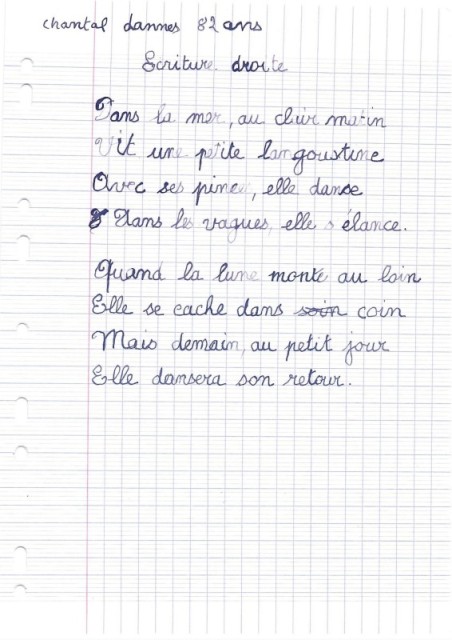 chantal dannes 82 ans
Ecriture droite
Dans la mer, au clair matin
Vit une petite langoustine
Avec ses pince, elle danse
Dans les vagues, elle s élance.
Quand la lune monte au loin
Elle se cache dans soin coin
Mais demain, au petit jour
Elle dansera son retour.